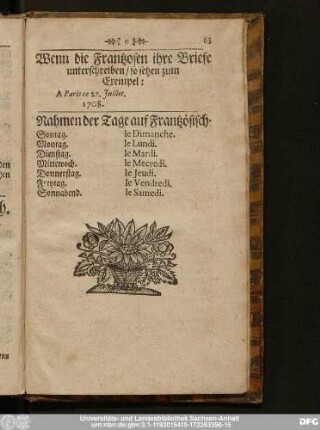 63
Wenn die Frantzosen ihre Briefe
unterschreiben / so setzen zum
Exempel:
A Paris ce 27. Juillet.
1708.
Nahmen der Tage auf Frantzösisch.
Sontag. le Dimanche.
Montag. le Lundi.
Dienstag. le Mardi.
Mittewoch. le Mecredi.
Donnerstag. le Jeudi.
Freytag. le Vendredi.
Sonnabend. le Samedi.
Universitäts- und Landesbibliothek Sachsen-Anhalt
urn:nbn:de:gbv:3:1-1192015415-172263356-15
DFG